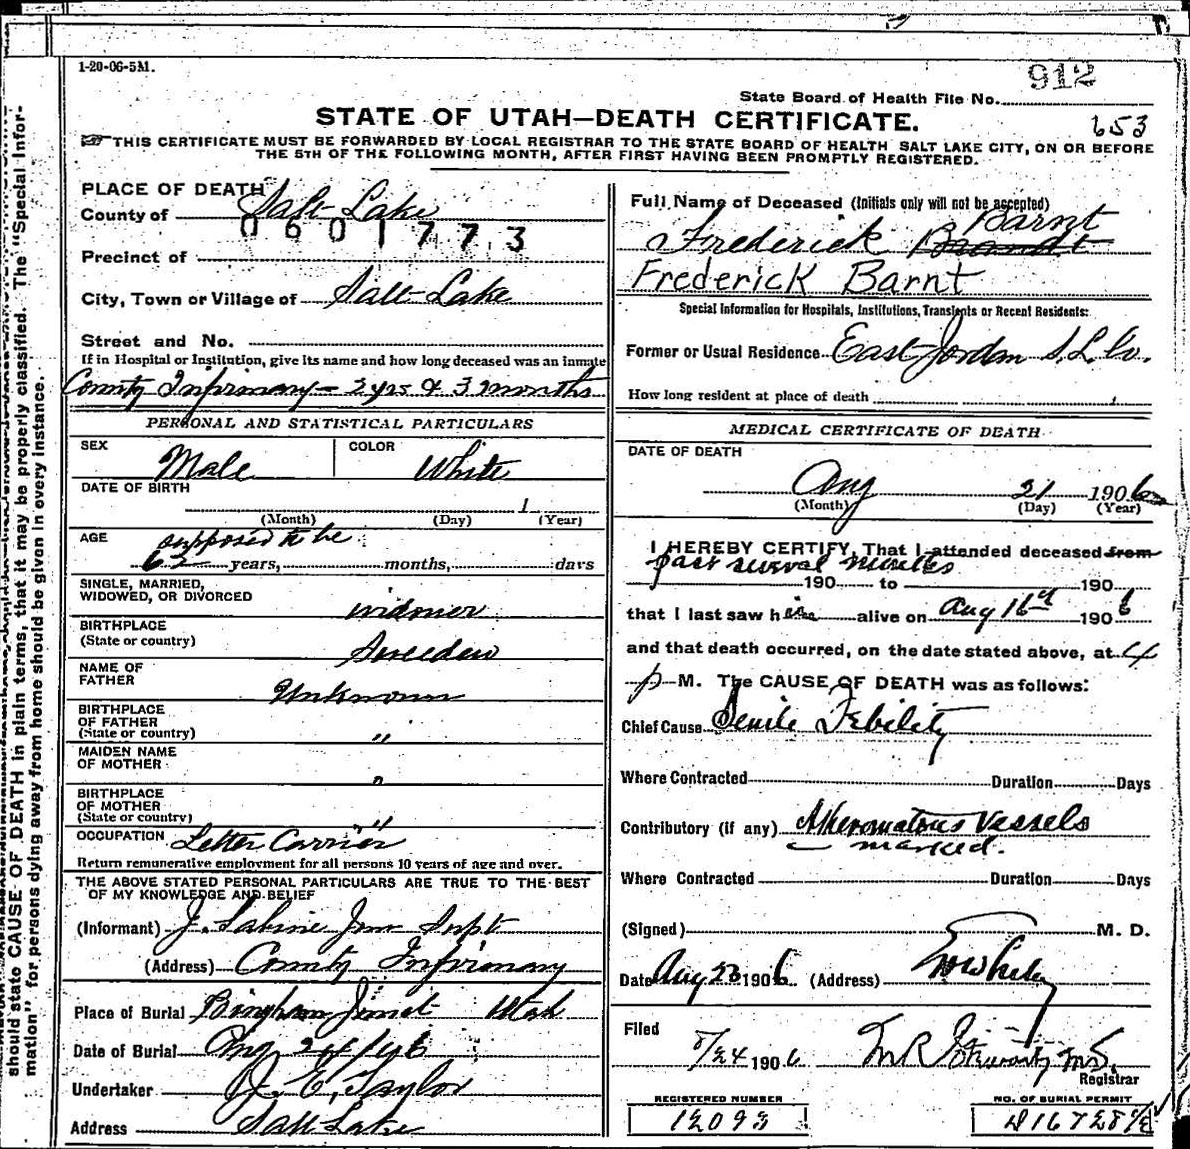 1-20-06-5M.
912
State Board of Health File No.
STATE OF UTAH—DEATH CERTIFICATE.
653
THIS CERTIFICATE MUST BE FORWARDED BY LOCAL REGISTRAR TO THE STATE BOARD OF HEALTH SALT LAKE CITY, ON OR BEFORE
THE 5TH OF THE FOLLOWING MONTH, AFTER FIRST HAVING BEEN PROMPTLY REGISTERED.
should state CAUSE OF DEATH in plain terms, that it may be properly classified. The "Special Infor-
mation" for persons dying away from home should be given in every instance.
PLACE OF DEATH
County of Salt Lake
0601773
Precinct of
City, Town or Village of Salt Lake
Street and No.
If in Hospital or Institution, give its name and how long deceased was an inmate
County Infirmary - 2 yrs & 3 months
PERSONAL AND STATISTICAL PARTICULARS
SEX Male COLOR White
DATE OF BIRTH
1
(Month) (Day) (Year)
AGE supposed to be
62 years, months, days
SINGLE, MARRIED,
WIDOWED, OR DIVORCED widower
BIRTHPLACE
(State or country) Sweeden
NAME OF
FATHER Unknown
BIRTHPLACE
OF FATHER
(State or country) "
MAIDEN NAME
OF MOTHER "
BIRTHPLACE
OF MOTHER
(State or country) "
OCCUPATION Letter Carrier
Return remunerative employment for all persons 10 years of age and over.
THE ABOVE STATED PERSONAL PARTICULARS ARE TRUE TO THE BEST
OF MY KNOWLEDGE AND BELIEF
(Informant) J. Sabine Supt
(Address) County Infirmary
Place of Burial Bingham Utah
Date of Burial Aug 24/06
Undertaker J. E. Taylor
Address Salt Lake
Full Name of Deceased (Initials only will not be accepted)
Barnt
Frederick Brandt
Frederick Barnt
Special Information for Hospitals, Institutions, Transients or Recent Residents:
Former or Usual Residence East Jordan S. L. Co.
How long resident at place of death
MEDICAL CERTIFICATE OF DEATH
DATE OF DEATH
Aug 21 1906
(Month) (Day) (Year)
I HEREBY CERTIFY, That I attended deceased from
past several months
190 to 190
that I last saw him alive on Aug 16th 1906
and that death occurred, on the date stated above, at 4
p M. The CAUSE OF DEATH was as follows:
Chief Cause Senile Debility
Where Contracted Duration Days
Contributory (if any) Atheromatous Vessels
marked.
Where Contracted Duration Days
(Signed) M. D.
Date Aug 23 1906 (Address)
Filed
8/24 1906 M R Stewart M.D.
Registrar
REGISTERED NUMBER
12093
NO. OF BURIAL PERMIT